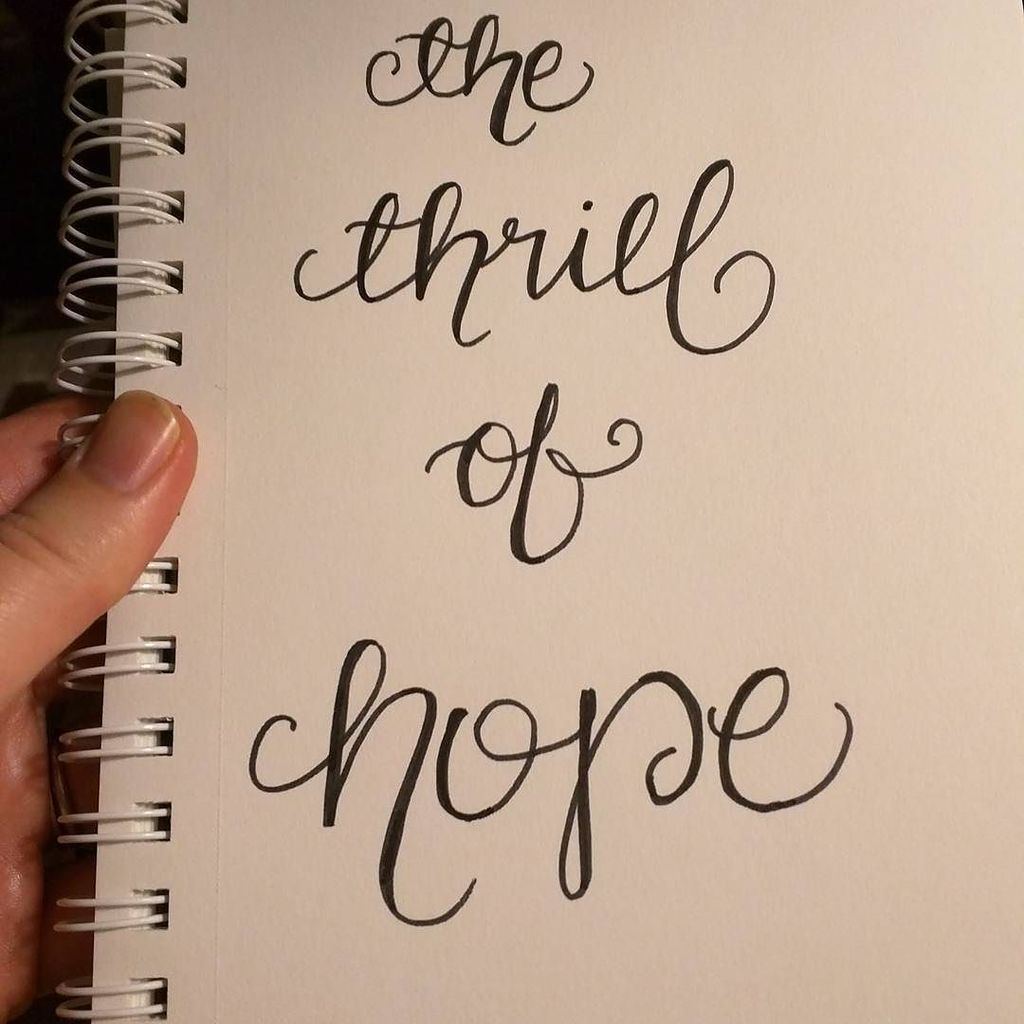 the
thrill
of
hope